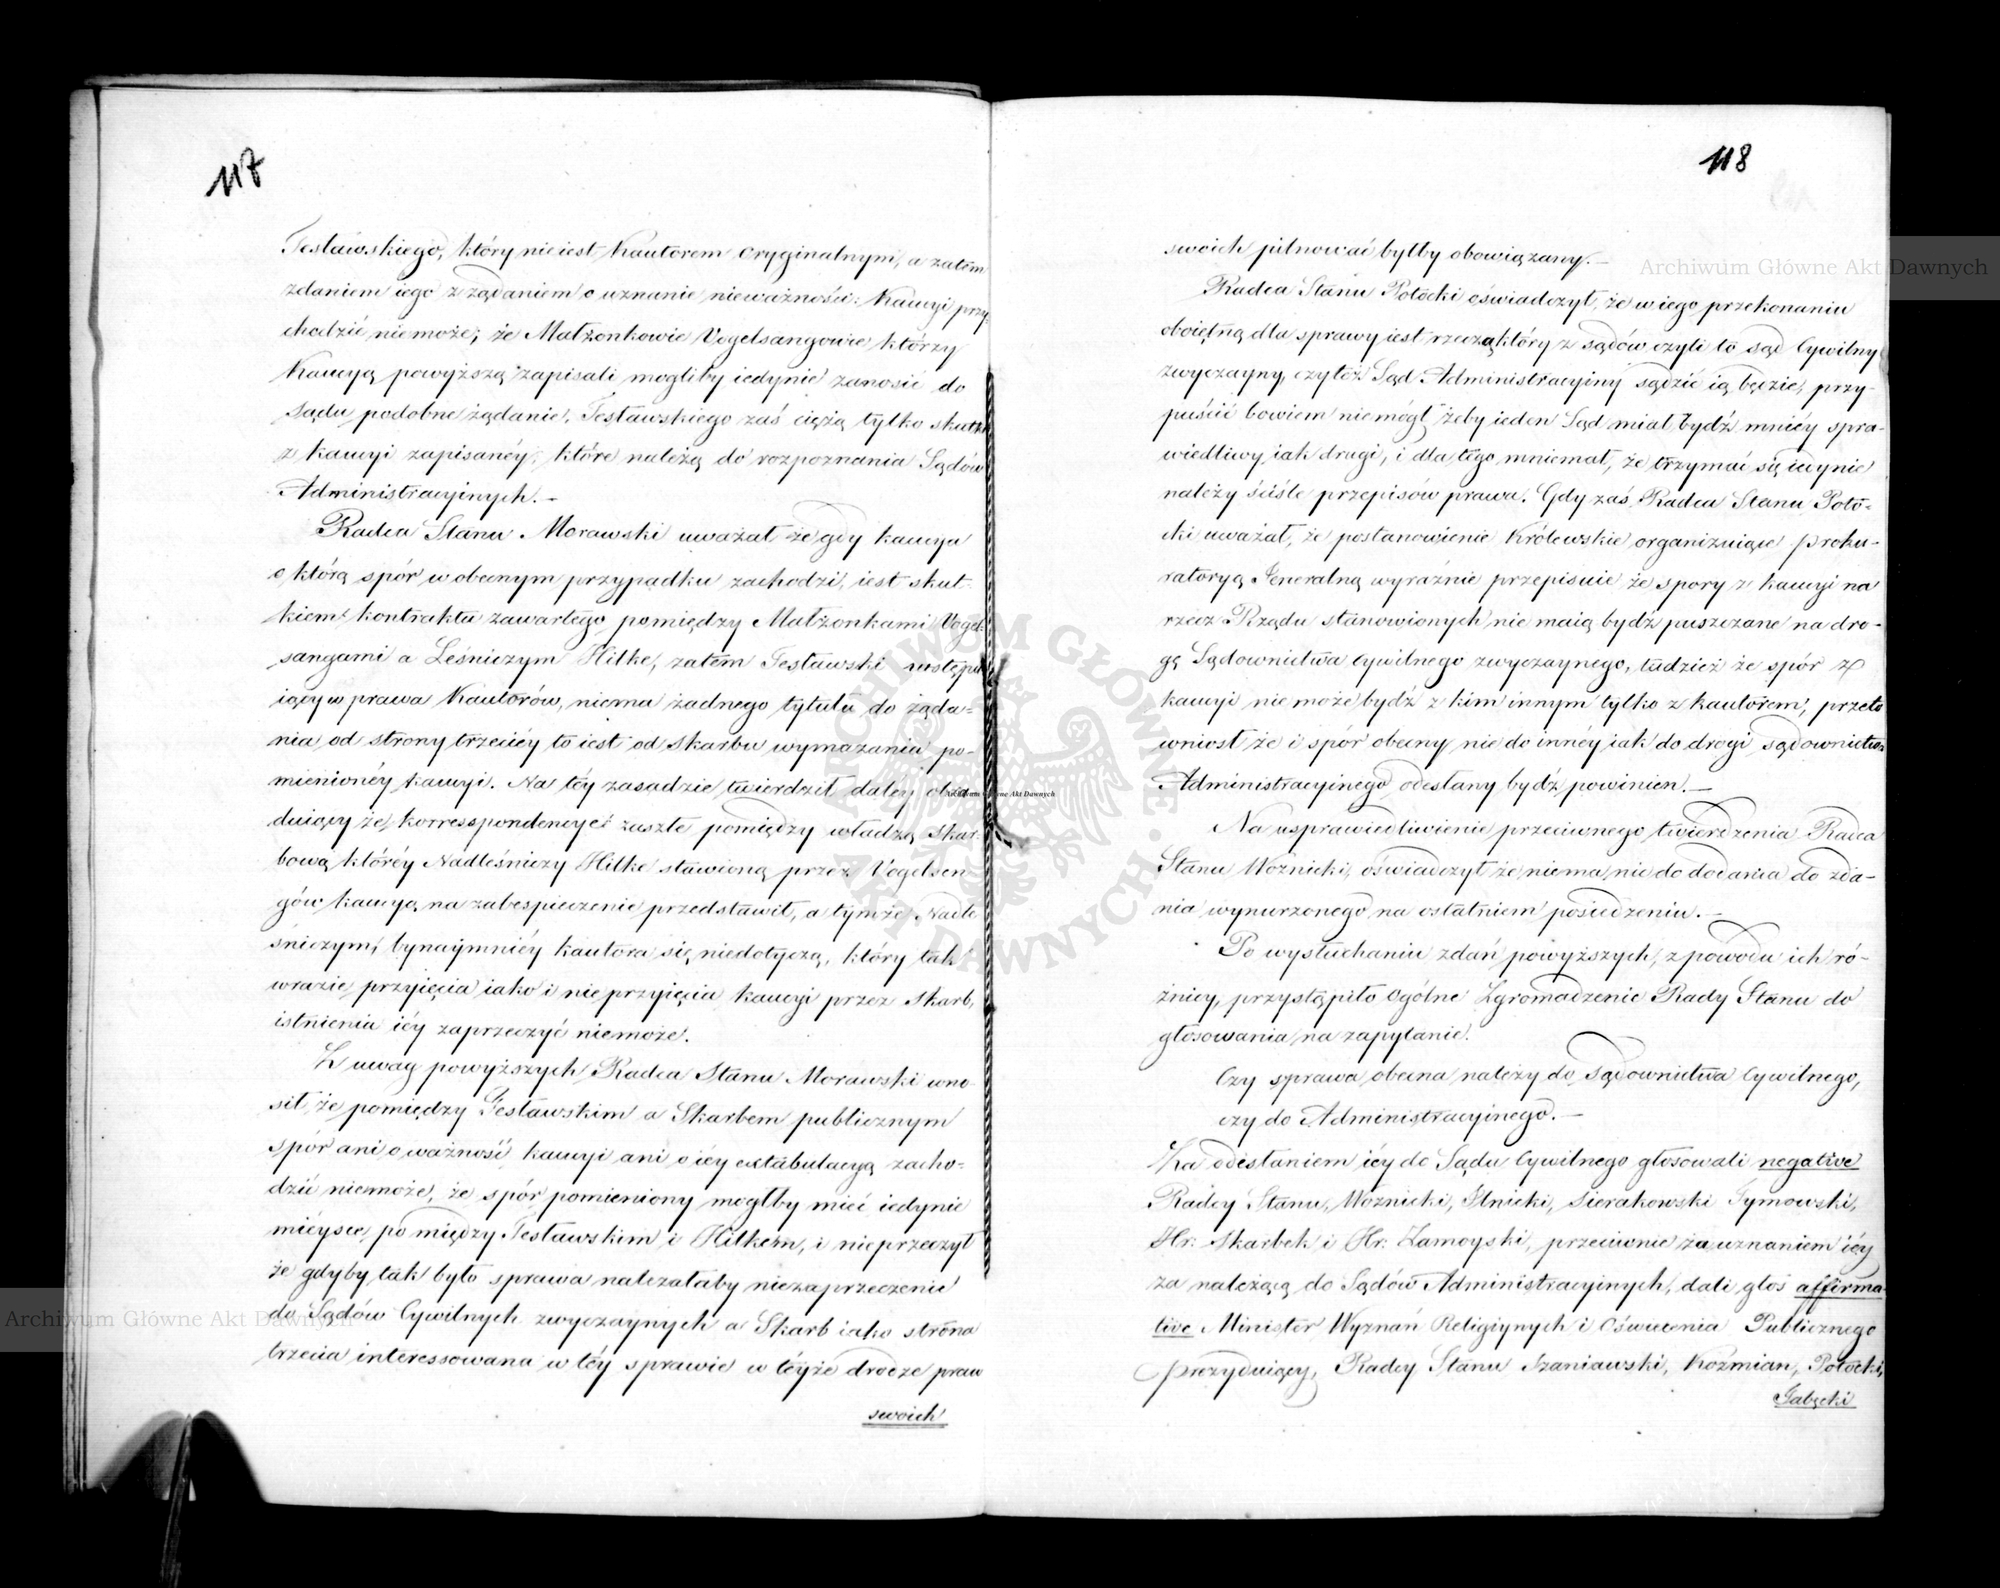 117
Tesławskiego, który nieiest Kautorem oryginalnym, a zatem
zdaniem iego z żądaniem o uznanie nieważności Kaucyi przy-
chodzić niemoże; że Małżonkowie Vogelsangowie którzy
Kaucyą powyższą zapisali mogliby iedynie zanosić do
Sądu podobne żądanie, Tesławskiego zaś ciężą tylko skutki
z kaucyi zapisanéy, które należą do rozpoznania Sądów
Administracyinych.—
Radca Stanu Morawski uważał że gdy kaucya
o którą spór w obecnym przypadku zachodzi, iest skut-
kiem kontraktu zawartego pomiędzy Małżonkami Vogel-
sangami a Leśniczym Hilke, zatem Tesławski wstępu-
iący w prawa Kautorów, niema żadnego tytułu do żąda-
nia od strony trzeciéy to iest od Skarbu wymazania po-
mienionéy kaucyi. Na téy zasadzie twierdził daléy obra-
duiący że korrespondencye zaszłe pomiędzy władzą Skar-
bową któréy Nadleśniczy Hilke stawioną przez Vogelsan-
gów kaucyą na zabespieczenie przedstawił, a tymże Nadle-
śniczym, bynaymniéy kautora się niedotyczą, który tak
wrazie przyięcia iako i nie przyięcia kaucyi przez Skarb,
istnienia iéy zaprzeczyć niemoże.
Z uwag powyższych Radca Stanu Morawski wno-
sił, że pomiędzy Tesławskim a Skarbem publicznym
spór ani o ważność kaucyi ani o iéy extabulacyą zacho-
dzić niemoże, że spór pomieniony mogłby mieć iedynie
mieysce pomiędzy Tesławskim i Hilkem, i nie przeczył
że gdyby tak było sprawa należałaby niezaprzeczenie
do Sądów Cywilnych zwyczaynych a Skarb iako strona
trzecia interessowana w téy sprawie w téyże drodze praw
swoich
118
swoich pilnować byłby obowiązany.—
Radca Stanu Potocki oświadczył, że w iego przekonaniu
oboiętną dla sprawy iest rzeczą który z sądów czyli to sąd Cywilny
zwyczayny, czyteż Sąd Administracyiny sądzić ią będzie, przy-
puścić bowiem niemógł żeby ieden Sąd miał bydź mniéy spra-
wiedliwy iak drugi, i dla tego mniemał, że trzymać się iedynie
należy ściśle przepisów prawa. Gdy zaś Radca Stanu Poto-
cki uważał, że postanowienie Królewskie organizuiące Proku-
ratoryą Jeneralną wyraźnie przepisuie że spory z kaucyi na
rzecz Rządu stanowionych nie maią bydź puszczane na dro-
gę Sądownictwa Cywilnego zwyczaynego, tudzież że spór z
kaucyi nie może bydź z kim innym tylko z kautorem, przeto
wniosł że i spór obecny nie do innéy iak do drogi sądownictwa
Administracyinego odesłany bydź powinien.—
Na usprawiedliwienie przeciwnego twierdzenia Radca
Stanu Woznicki, oświadczył że niema nic do dodania do zda-
nia wynurzonego na ostatniem posiedzeniu.—
Po wysłuchaniu zdań powyższych, z powodu ich ró-
żnicy, przystąpiło Ogólne Zgromadzenie Rady Stanu do
głosowania na zapytanie:
Czy sprawa obecna należy do Sądownictwa Cywilnego,
czy do Administracyinego.—
Za odesłaniem iéy do Sądu Cywilnego głosowali negative
Radcy Stanu, Woznicki, Ilnicki, Sierakowski Tymowski,
Hr. Skarbek i Hr. Zamoyski, przeciwnie za uznaniem iéy
za należącą do Sądów Administracyinych, dali głos affirma-
tive Minister Wyznań Religiynych i Oświecenia Publicznego
Prezyduiący, Radcy Stanu Szaniawski, Koźmian, Potocki,
Gałęcki